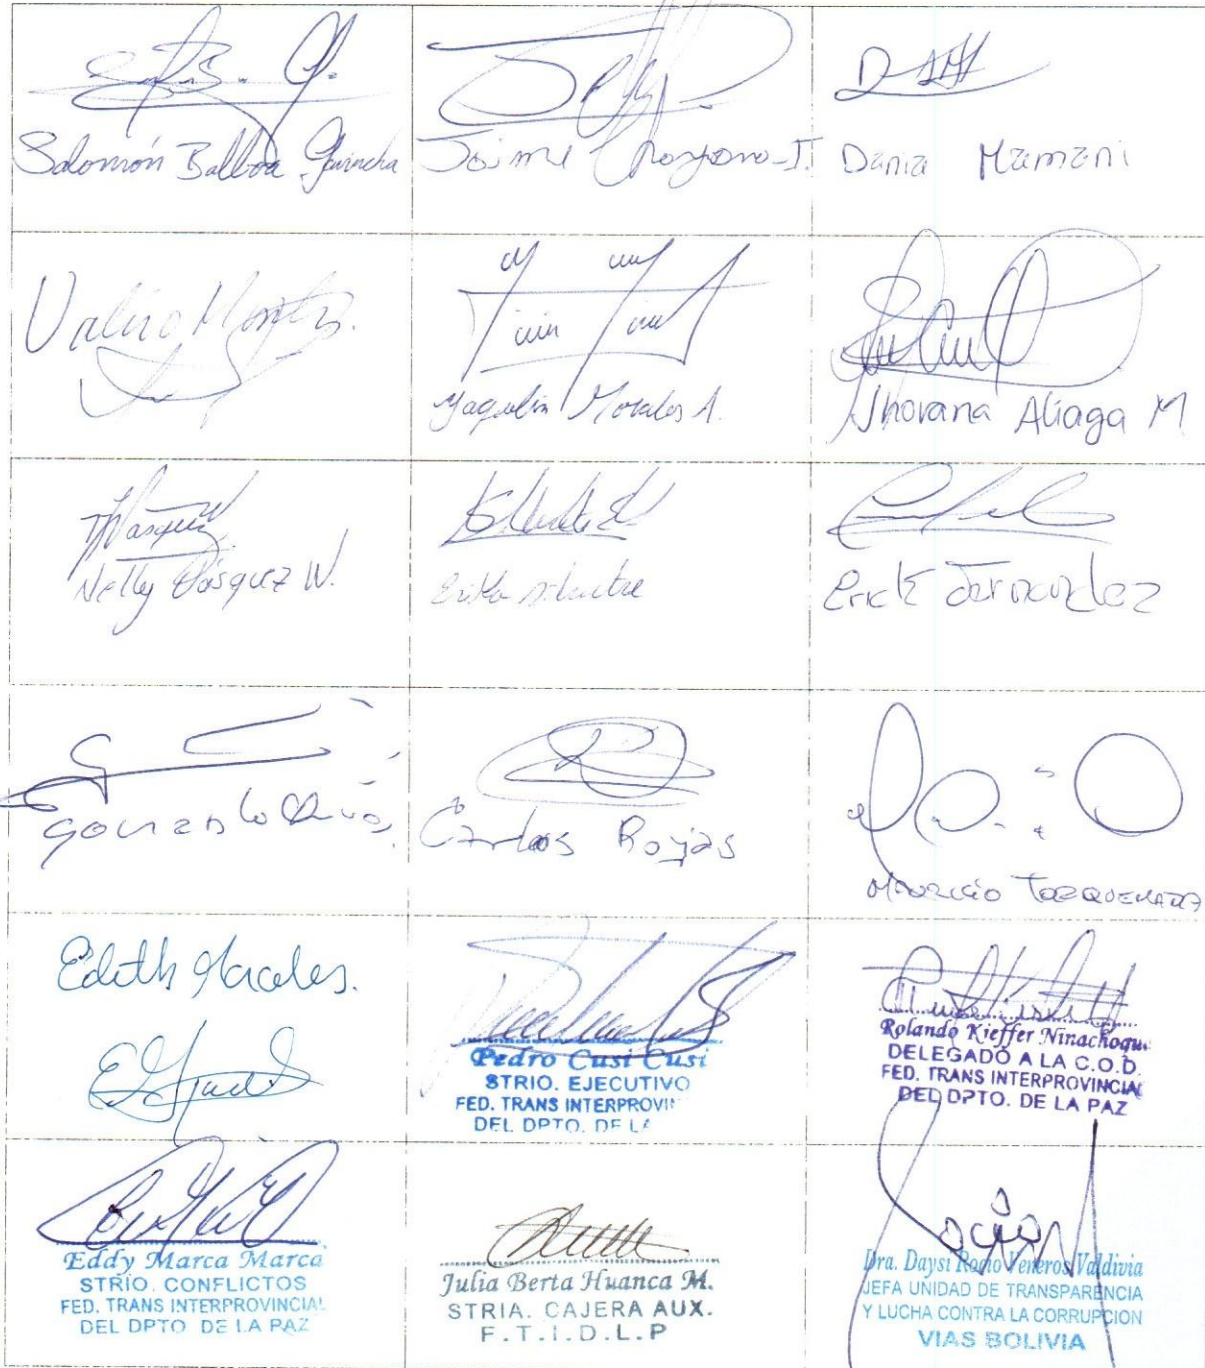 Salomón Balboa
Jaime
Dania Mamani
Valerio
Yaquelin Morales A.
Jhovana Aliaga M
Nelly Vásquez W.
Erika
Erick Fernandez
Gonzalo
Carlos Rojas
Mauricio Torquemada
Edith Morales.
Pedro Cusi Cusi
STRIO. EJECUTIVO
FED. TRANS INTERPROVIN
DEL DPTO. DE LA
Rolando Kieffer Ninachoqu
DELEGADO A LA C.O.D.
FED. TRANS INTERPROVINCIAL
DEL DPTO. DE LA PAZ
Eddy Marca Marca
STRIO. CONFLICTOS
FED. TRANS INTERPROVINCIAL
DEL DPTO DE LA PAZ
Julia Berta Huanca M.
STRIA. CAJERA AUX.
F.T.I.D.L.P
Dra. Daysi Rocio Veneros Valdivia
JEFA UNIDAD DE TRANSPARENCIA
Y LUCHA CONTRA LA CORRUPCION
VIAS BOLIVIA